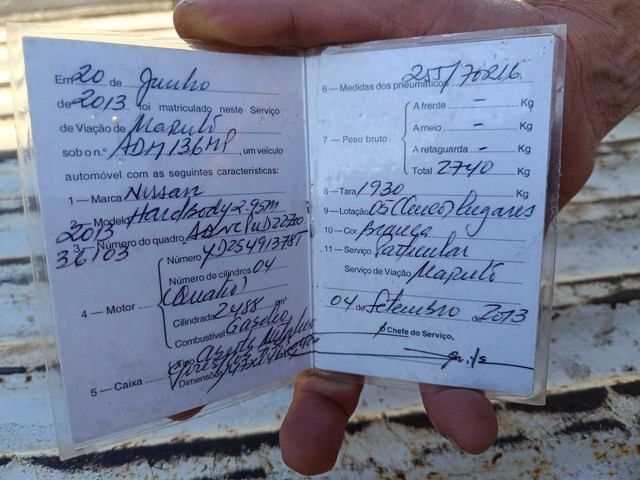 Em 20 de Junho
de 2013 foi matriculado neste Serviço
de Viação de Maputo
sob o n.º ADM 136 MP, um veículo
automóvel com as seguintes características:
1 — Marca Nissan
2 — Modelo Hardbody 2.95M
2013
3 — Número do quadro
36103
4 — Motor
Número YD25491378T
Número de cilindros 04
(Quatro)
Cilindrada 2488 cm³
Combustível Gasóleo
5 — Caixa
Tipo Aberta
Dimensões
6 — Medidas dos pneumáticos 255/70R16
7 — Peso bruto
A frente - Kg
A meio - Kg
A retaguarda - Kg
Total 2740 Kg
8 — Tara 1930 Kg
9 — Lotação 05 (Cinco) lugares
10 — Cor branca
11 — Serviço Particular
Serviço de Viação Maputo
04 de Setembro de 2013
O Chefe do Serviço,